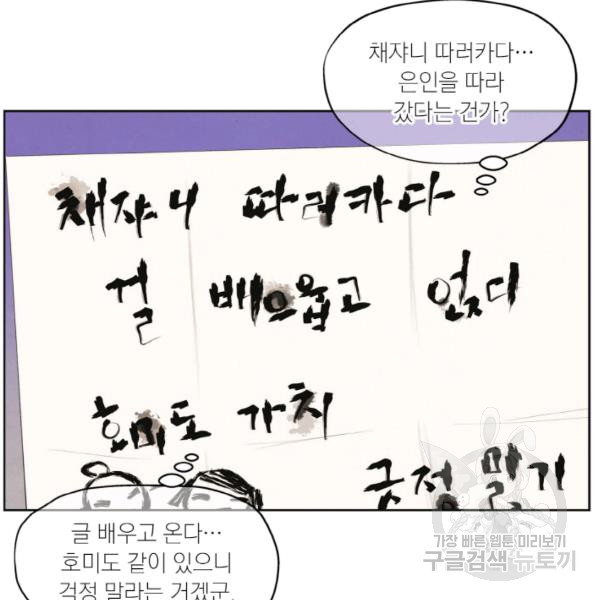 채쟈니 따러카다…
은인을 따라
갔다는 건가?
채쟈니 따리카다
걸 배으웁고 잇디
호미도 가치
긍정 말기
글 배우고 온다…
호미도 같이 있으니
걱정 말라는 거겠군.
가장 빠른 웹툰 미리보기
구글검색 뉴토끼